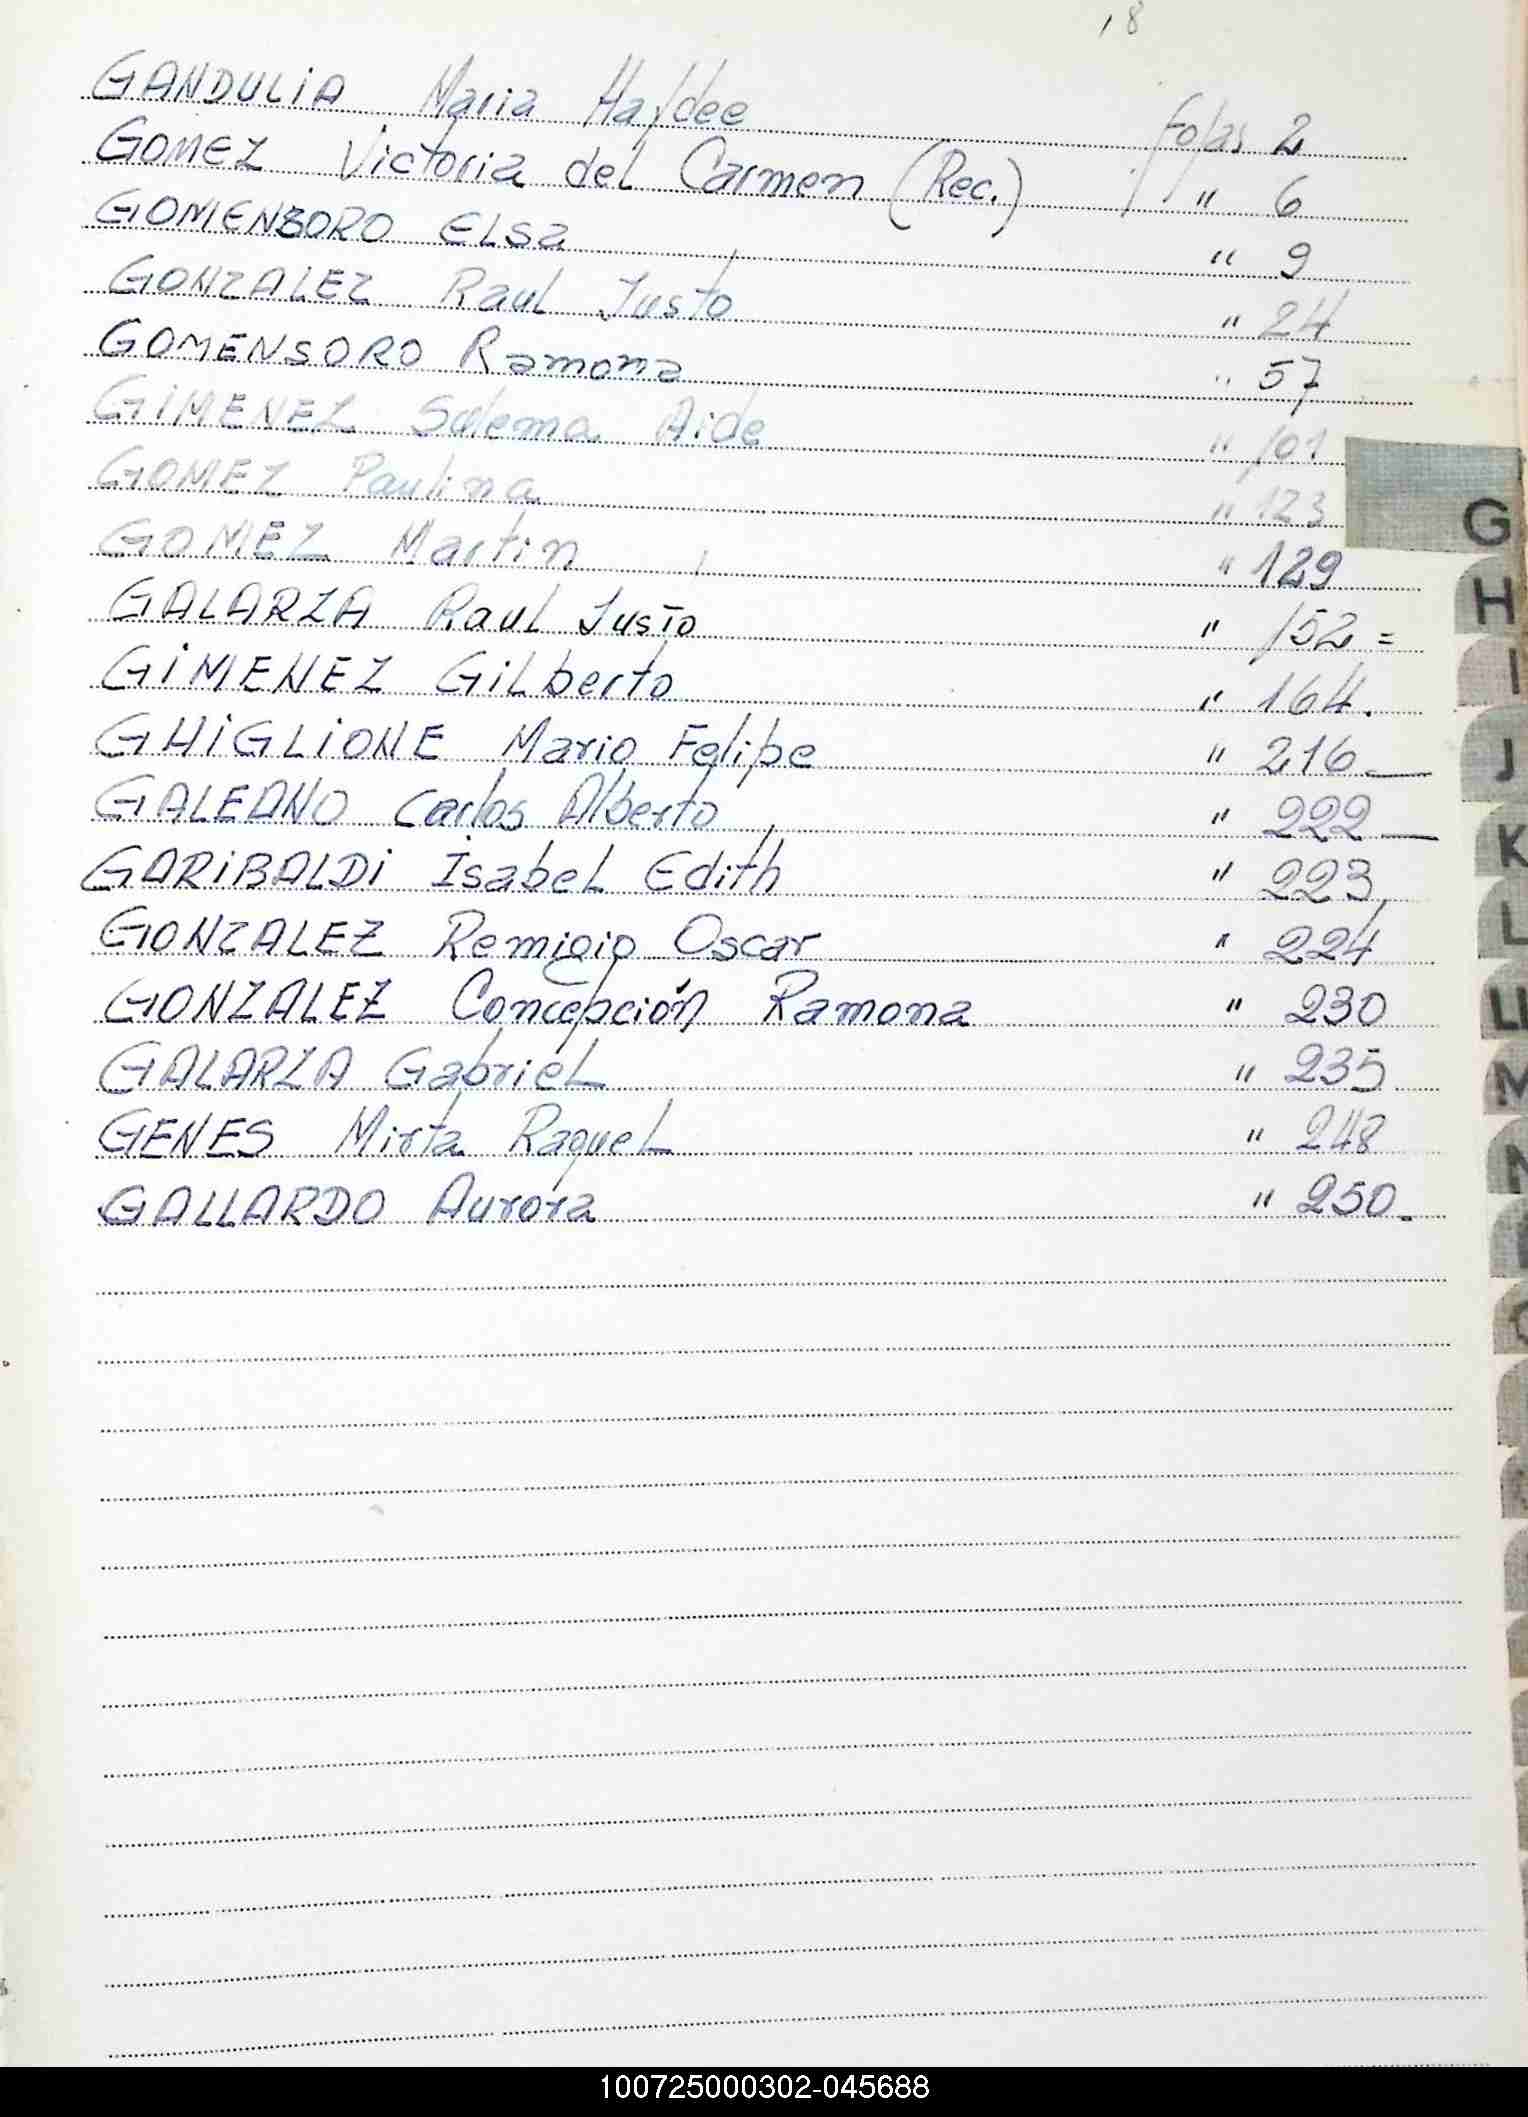 18
GANDULiA Maria Haydee fojas 2
GOMEZ Victoria del Carmen (Rec.) " 6
GOMENSORO ELSa " 9
GONZALEZ Raul Justo " 24
GOMENSORO Ramona " 57
GiMENEZ Sulema Aide " 101
GOMEZ Paulina " 123
GOMEZ Martin " 129
GALARZA Raul Justo " 152=
GiMENEZ GiLberto " 164.
GHiGLiONE Mario Felipe " 216—
GALEANO Carlos Alberto " 222—
GARiBALDi isabeL Edith " 223
GONZALEZ Remigio Oscar " 224
GONZALEZ Concepción Ramona " 230
GALARZA GabrieL " 235
GENES Mirta RaqueL " 248
GALLARDO Aurora " 250.
G
H
I
J
K
L
LL
M
N
100725000302-045688